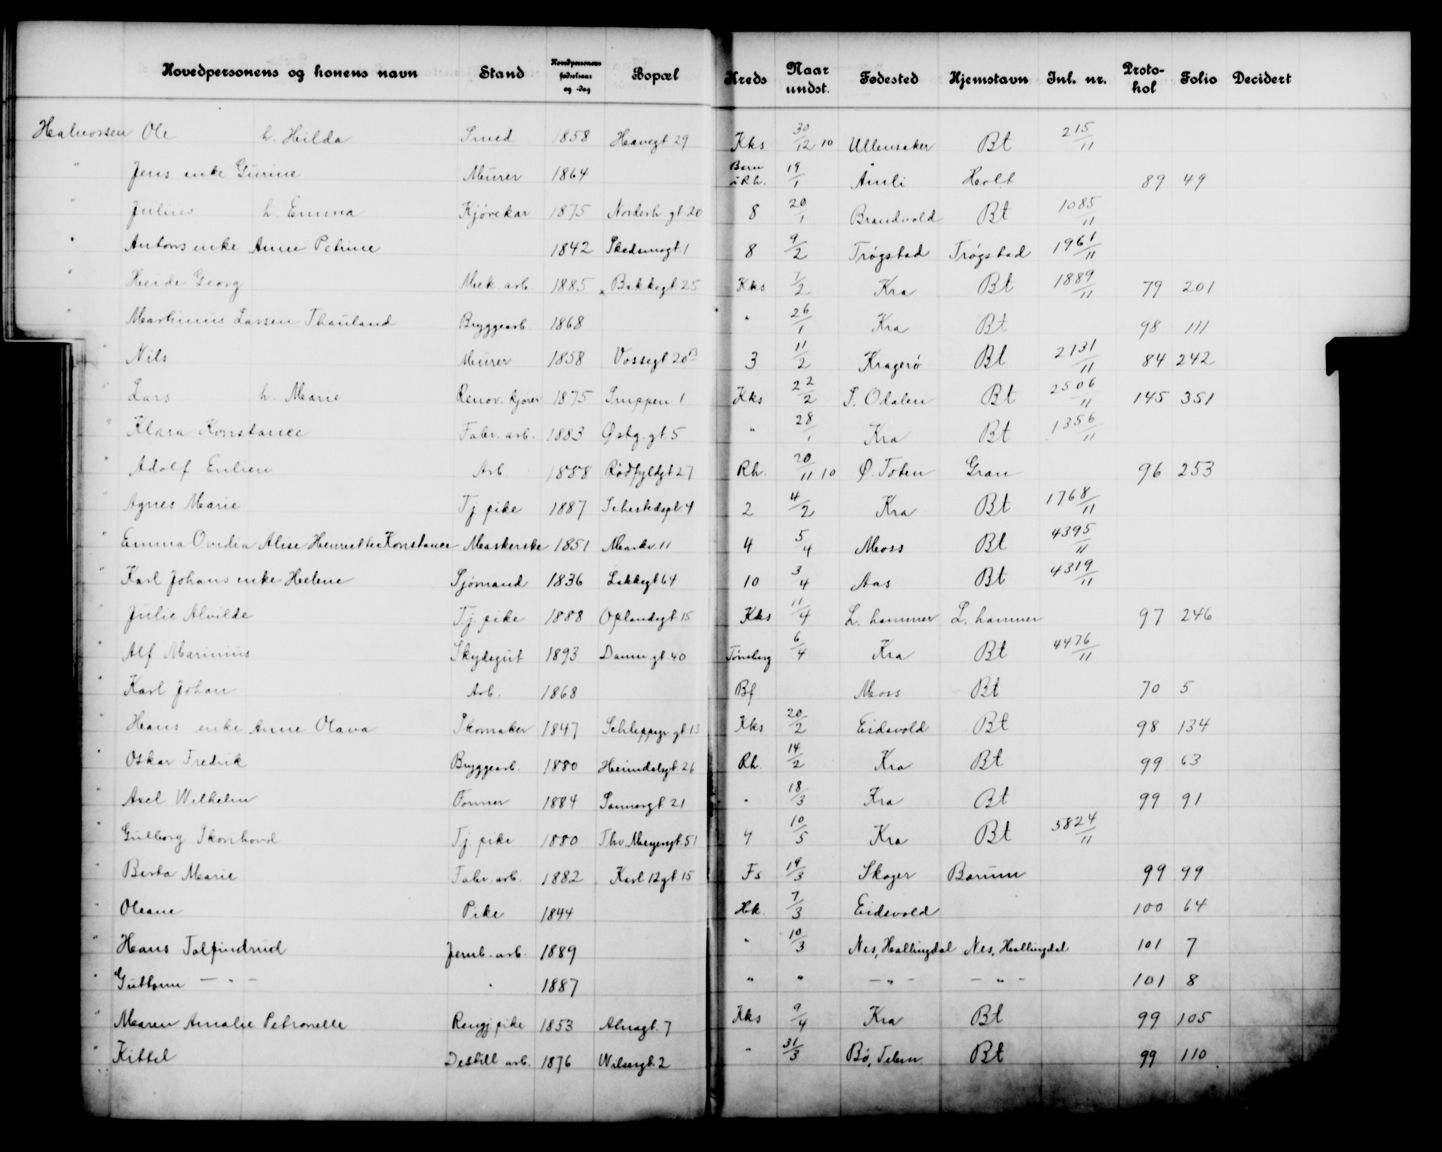 Hovedpersonens og konens navn Stand Hovedpersonens fødselsaar og -dag Bopæl Kreds Naar undst. Fødested Hjemstavn Inl. nr. Proto-kol Folio Decidert
Halvorsen Ole h. Hilda Smed 1858 Havegt 29 Kks 30/12 10 Ullensaker Bt 215/11
" Jens enke Gurine Murer 1864 19/1 Åmli Holt 89 49
" Julius h. Emma Kjørekar 1875 20 8 20/1 Brandvold Bt 1085/11
" Antons enke Anne Petrine 1842 Skedsmogt 1 8 9/2 Trøgstad Trøgstad 1961/11
" Heide Georg Mek. arb. 1885 Bakkegt 25 Kks 7/2 Kra Bt 1889/11 79 201
" Martinius Larsen Thauland Bryggearb. 1868 " 26/1 Kra Bt 98 111
" Nils Murer 1858 Vossegt 20 B 3 11/2 Kragerø Bt 2131/11 84 242
" Lars h. Marie Renov. kjører 1875 Smippen 1 Kks 22/2 S. Odalen Bt 2506/11 145 351
" Klara Konstance Fabr. arb. 1883 Østbg. gt 5 " 28/1 Kra Bt 1356/11
" Adolf Emlien Arb 1858 Rødfyldgt 27 Rh. 20/11 10 Ø. Toten Gran 96 253
" Agnes Marie Tj. pike 1887 Sehestedspl. 4 2 4/2 Kra Bt 1768/11
" Emma Ovidia Alise Henriette Konstance Maskerske 1851 Markv. 11 4 5/4 Moss Bt 4395/11
" Karl Johans enke Helene Sjømand 1836 Lakkegt 64 10 3/4 Aas Bt 4319/11
" Julie Alvilde Tj. pike 1888 Oplandsgt 15 Kks 11/4 L. hammer L. hammer 97 246
" Alf Marinius Skydsgut 1893 gt 40 Tønsberg 6/4 Kra Bt 4476/11
" Karl Johan Arb. 1868 Bf Moss Bt 70 5
" Hans enke Anne Olava Skomaker 1847 Schleppegr. gt 13 Kks 20/2 Eidsvold Bt 98 134
" Oskar Fredrik Bryggearb. 1880 Heimdalsgt 26 Rh. 14/2 Kra Bt 99 63
" Axel Wilhelm Former 1884 Sannergt. 21 " 18/3 Kra Bt 99 91
" Gulborg Skonhovd Tj. pike 1880 Thv. Meyersgt. 51 7 10/5 Kra Bt 5824/11
" Berta Marie Fabr. arb. 1882 Karl 12 gt 15 Fs 19/3 Skoger Bærum 99 99
" Oleane Pike 1844 Hk. 7/3 Eidsvold 100 64
" Hans Tolfindrud Jernb. arb. 1889 " 10/3 Nes, Hallingdal Nes, Hallingdal 101 7
" Guttorm — " — " 1887 " " — " — — " — 101 8
" Maren Amalie Petronelle Rengj. pike 1853 Alnagt. 7 Kks 9/4 Kra Bt 99 105
" Kittel Destill. arb. 1876 Wilsesgt. 2 " 31/3 Bø, Telem. Bt 99 110